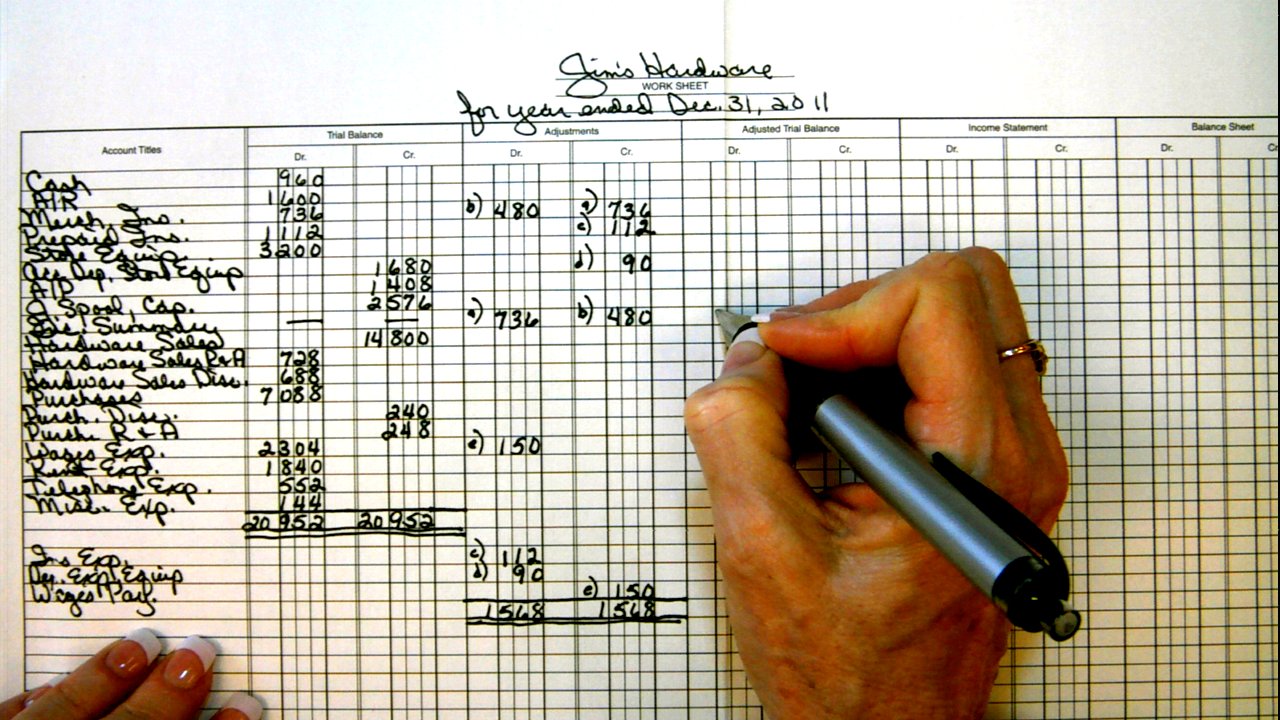 Jim's Hardware
WORK SHEET
for year ended Dec. 31, 2011
Account Titles Trial Balance Adjustments Adjusted Trial Balance Income Statement Balance Sheet
Dr. Cr. Dr. Cr. Dr. Cr. Dr. Cr. Dr. C
Cash 960
A/R 1600
Merch. Inv. 736 b) 480 a) 736
Prepaid Ins. 1112 c) 112
Store Equip. 3200
Acc. Dep. Store Equip 1680 d) 90
A/P 1408
Spool, Cap. 2576
Inc. Summary — — a) 736 b) 480
Hardware Sales 14800
Hardware Sales R&A 728
Hardware Sales Disc. 688
Purchases 7088
Purch. Disc. 240
Purch. R & A 248
Wages Exp. 2304 e) 150
Rent Exp. 1840
Telephone Exp. 552
Misc. Exp. 144
20952 20952
Ins Exp. c) 112
Dep. Exp. Equip d) 90
Wages Pay. e) 150
1568 1568